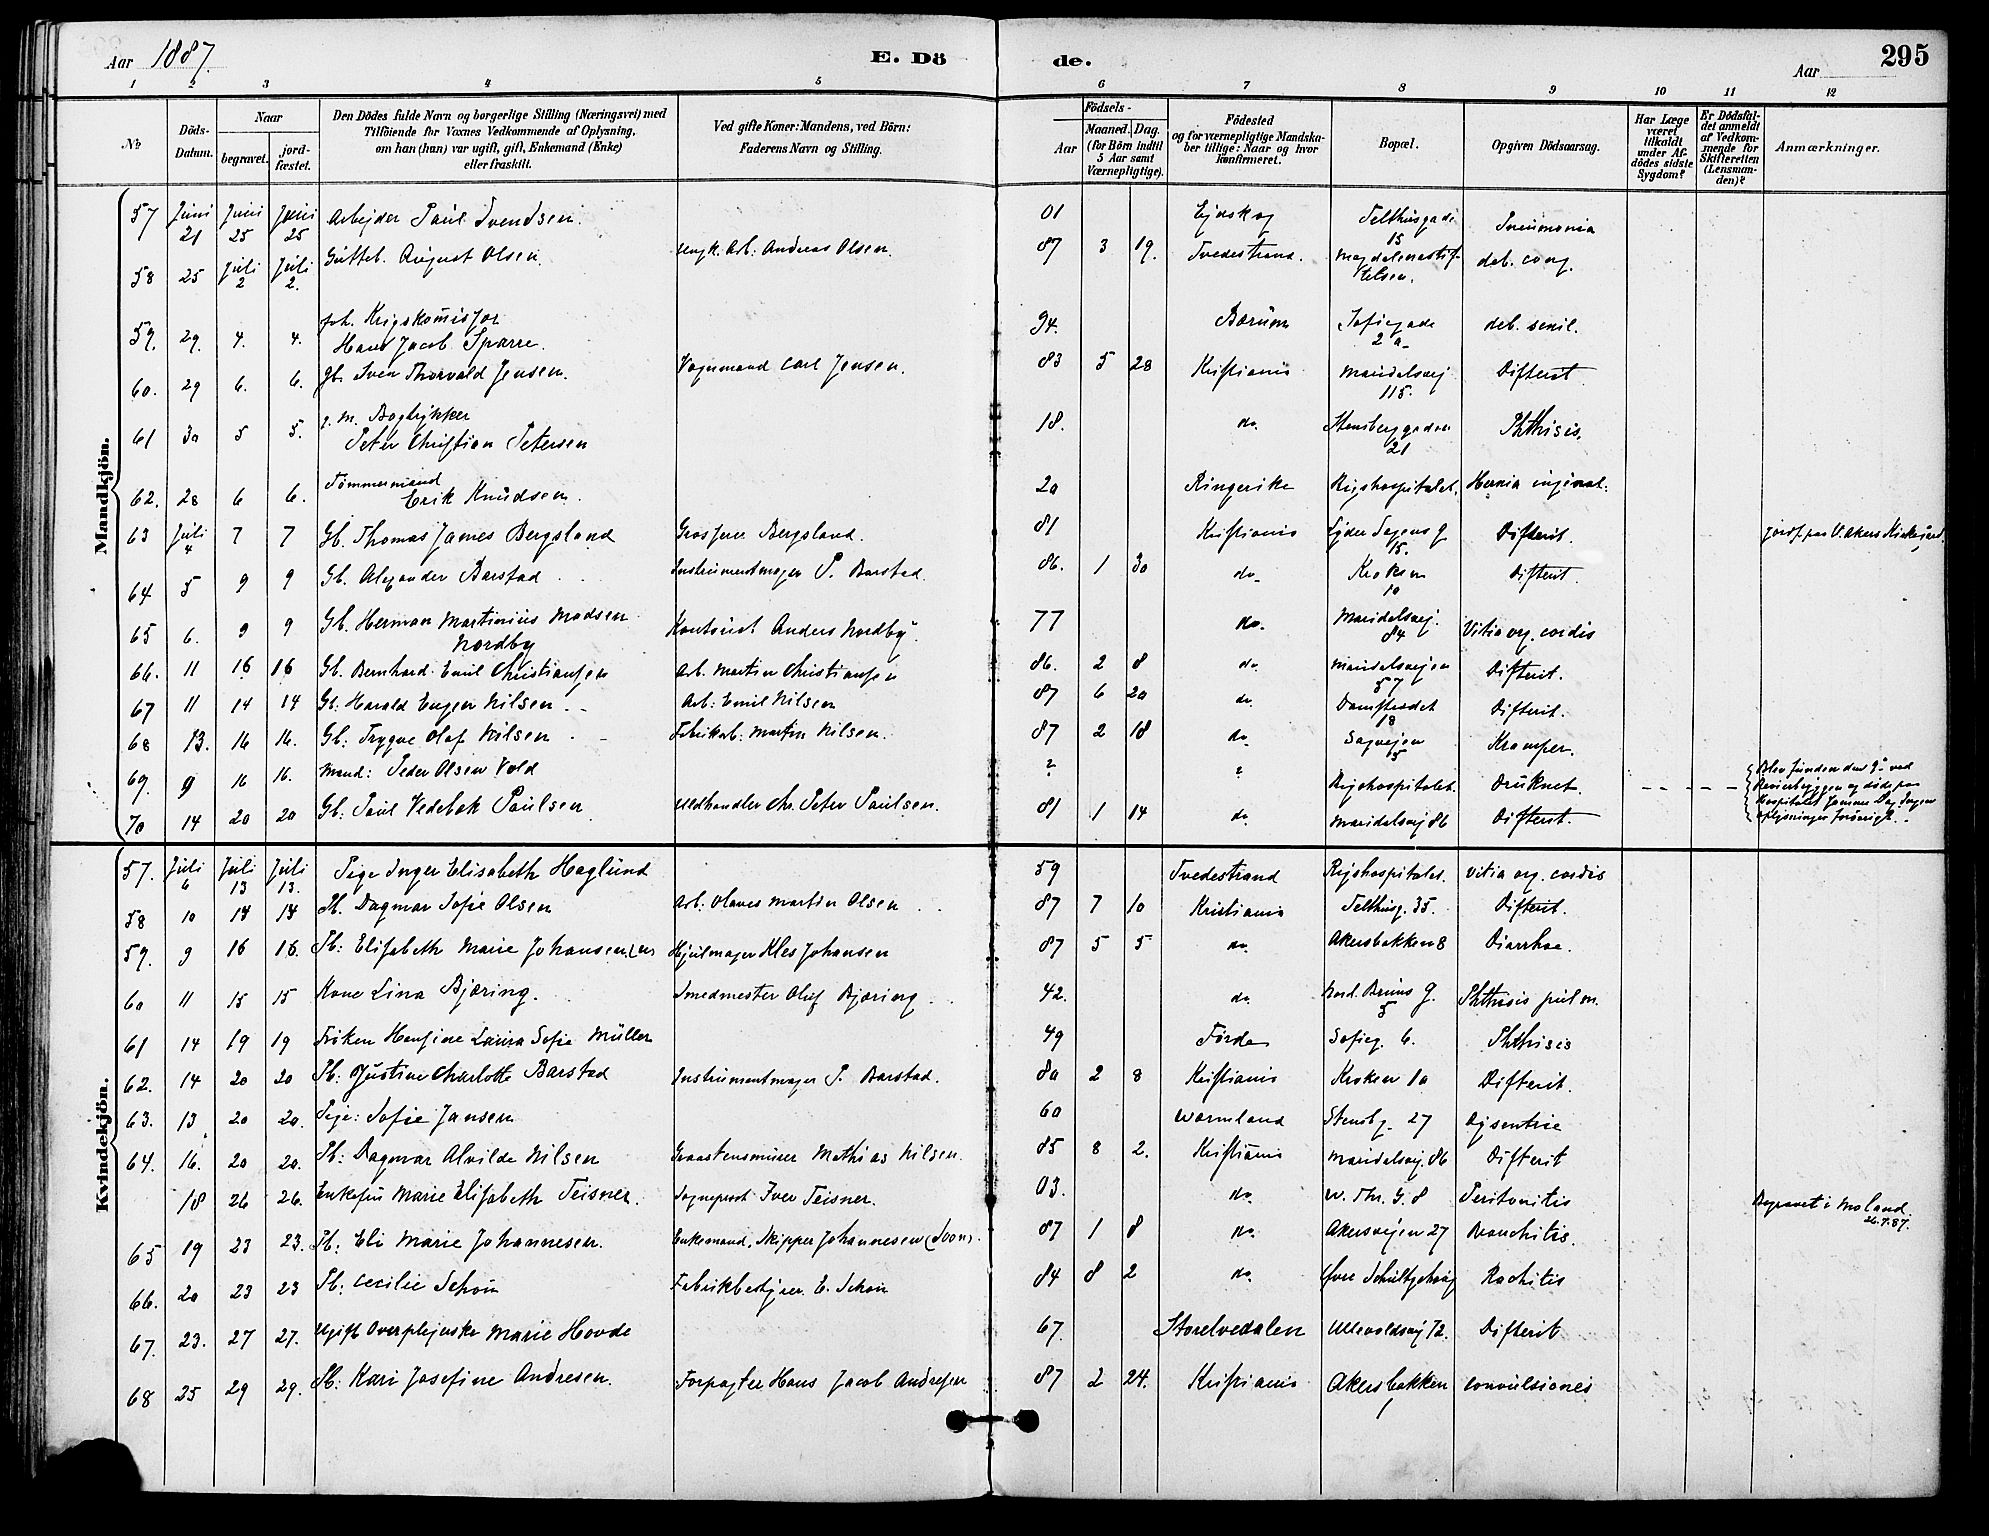 Aar 1887. E. Dö de. Aar 295
1 2 3 4 5 6 7 8 9 10 11 12
No
Döds-Datum.
Naar
begravet.
jord-fæstet.
Den Dödes fulde Navn og borgerlige Stilling (Næringsvei) med
Tilföiende for Voxnes Vedkommende af Oplysning,
om han (hun) var ugift, gift, Enkemand (Enke)
eller fraskilt.
Ved gifte Koner: Mandens, ved Börn:
Faderens Navn og Stilling.
Födsels-
Aar
Maaned. Dag.
(for Börn indtil
5 Aar samt
Værnepligtige).
Födested
og for værnepligtige Mandska-
ber tillige: Naar og hvor
konfirmeret.
Bopæl.
Opgiven Dödsaarsag.
Har Læge
været
tilkaldt
under Af-
dödes sidste
Sygdom?
Er Dödsfal-
det anmeldt
af Vedkom-
mende for
Skifteretten
(Lensman-
den)?
Anmærkninger.
Mandkjön.
57 Juni 21 Juni 25 Juni 25 Arbejder Paul Svendsen. 01 Ejdskog Telthusgade 15 Pneumonia
58 25 Juli 2 Juli 2. Gutteb. August Olsen. Ungk. Arb. Andreas Olsen. 87 3 19. Tvedestrand. Magdalenastif-telsen. deb. cong.
59. 29. 4. 4. foh. Krigskomisjær
Hans Jacob Sparre. 94. Bærum Sofiegade 2 a deb. senil.
60. 29 6. 6. Gb. Sven Thorvald Jensen. Vognmand Carl Jensen. 83 5 28 Kristiania Maridalsvej 115. Difterit.
61 30 5 5. g. M. Bogtrykker
Peter Christian Petersen 18. do. Stensberggaden 21 Phthisis.
62. 28 6 6. Tömmermand
Erik Knudsen. 20 Ringerike Rigshospitalet. Hernia inginal.
63 Juli 4 7 7 Gb. Thomas James Bergsland Grosserer Bergsland. 81 Kristiania Lyder Sagens g 15. Difterit. jordf. paa V. Akers Kirkegård.
64 5 9 9 Gb. Alexander Barstad Instrumentmager P. Barstad. 86. 1 30 do. Kroken 10 Difterit.
65 6. 9 9 Gb. Herman Martinius Madsen
Nordby Kontorist Anders Nordby. 77 do. Maridalsvej. 84 Vitia org. cordis
66. 11 16 16 Gb. Bernhard Emil Christiansen Arb. Martin Christiansen 86. 2 8 do. Maridalsvejen 57 Difterit.
67 11 14 14 Gb: Harald Eugen Nilsen Arb: Emil Nilsen 87 6 20 do. Damstredet 18 Difterit.
68 13. 16 16. Gb: Trygve Olaf Nilsen Fabrikarb. Martin Nilsen. 87 2 18 do. Sagvejen 15 Kramper.
69. 9 16 16. Mand: Peder Olsen Vold ? ? Rigshospitalet. Druknet. Blev funden den 9de ved
70 14 20 20 Gb: Paul Vedebak Paulsen Vedhandler Chr. Peter Paulsen. 81 1 14 do. Maridalsvej 86 Difterit. og døde paa
Hospitalet samme Dag. Ingen
oplysninger forøvrigt.
Kvindekjön.
57. Juli 6 Juli 13 Juli 13. Pige Inger Elisabeth Haglund 59 Tvedestrand Rigshospitalet. Vitia org. cordis
58 10 14 14 Pb. Dagmar Sofie Olsen Arb: Olaves Martin Olsen 87 7 10 Kristiania Telthusg. 35. Difterit.
59. 9 16 16. Pb: Elisabeth Marie Johansen Hjulmager Kles Johansen 87 5 5 do. Akersbakken 8 Diarrhoe.
60 11 15 15 Kone Lina Bjæring. Smedmester Oluf Bjæring. 42. do. Nord. Bruns G. 5 Phthisis pulm.
61 14 19 19 Fröken Hansine Laura Sofie Müller 49 Förde Sofieg. 6. Phthisis
62. 14 20 20 Pb: Justine Charlotte Barstad Instrumentmager P. Barstad. 80 2 8 Kristiania Kroken 10 Difterit.
63. 13 20 20. Pige: Sofie Jansen 60 Wærmland Stensbg. 27 Dysentrie
64. 16. 20 20. Pb: Dagmar Alvilde Nilsen Graastensmurer Mathias Nilsen. 85 8 2. Kristiania Maridalsvej. 86 Difterit
18 26 26. Enkefru Marie Elisabeth Teisner. Sogneprest Iver Teisner. 03. do. W. Thr. G. 8 Peritonitis Begravet i Moland. 26.7.87.
65 19 23 23. Pb: Eli Marie Johannesen. Enkemand, Skipper Johannesen 87 1 8 do. Akersvejen 27 Bronchitis.
66. 20 23 23 Pb: Cecilie Schou Fabrikbestyrer E. Schou 84 8 2 do. Rachitis
67. 23. 27 27. Ugift Overplejerske Marie Hovde 67. Storelvedalen Ullevoldsvej 72. Difterit
68 25 29 29. Pb: Kari Josefine Andresen. Forpagter Hans Jacob Andresen 87 2 24. Kristiania Akersbakken 1 Convulsiones